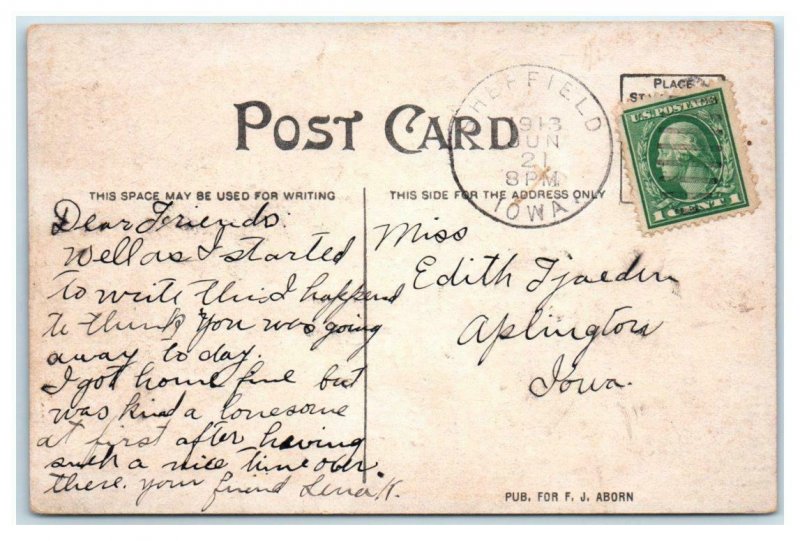 POST CARD
THIS SPACE MAY BE USED FOR WRITING
THIS SIDE FOR THE ADDRESS ONLY
PLACE
SHEFFIELD
1913
JUN
21
8 PM
IOWA
U.S. POSTAGE
1 CENT 1
Dear Friends.
Well as I started
to write this I happend
to think you was going
away to day.
I got home fine but
was kind a lonesome
at first after having
such a nice time over
there. your friend Lena K.
Miss
Edith Tjaden
Aplington
Iowa.
PUB. FOR F. J. ABORN